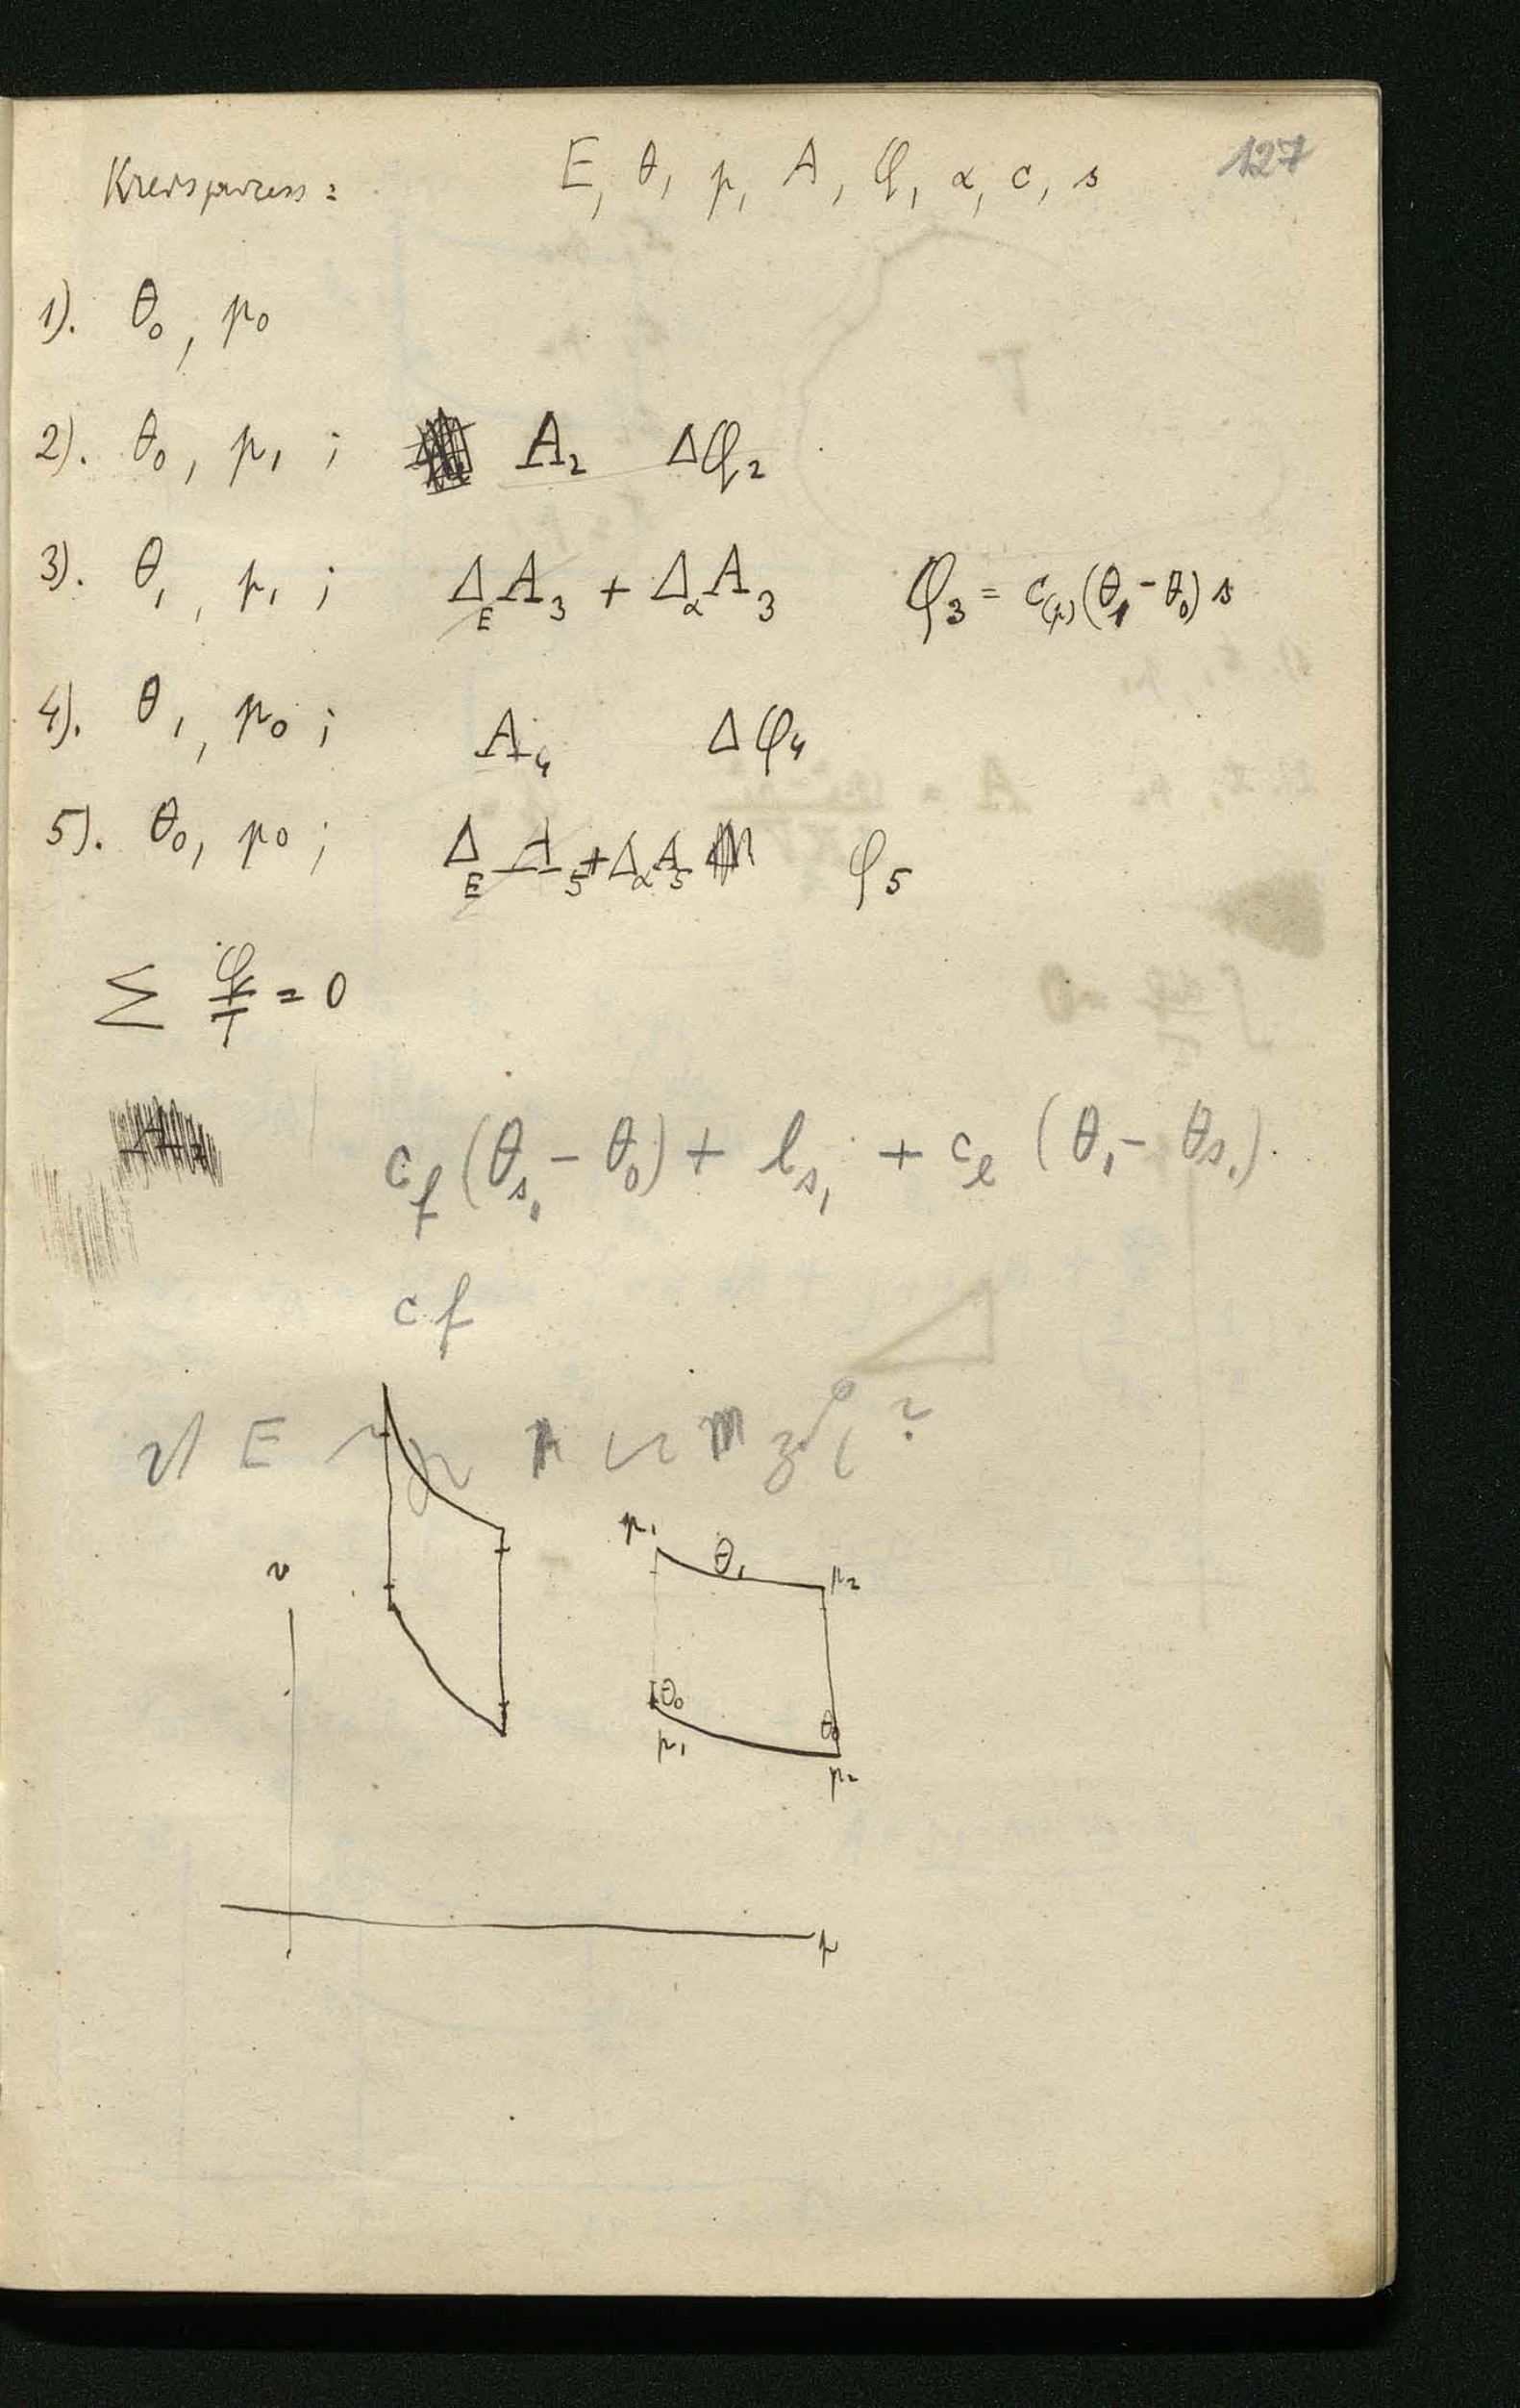 127
Kreisprozess: E, θ, p, A, φ, α, c, s
1). θ₀, p₀
2). θ₀, p₁; A₂ Δφ₂
3). θ₁, p₁; Δ_E A₃ + Δ_α A₃ φ₃ = c₍ₚ₎(θ₁ - θ₀) s
4). θ₁, p₀; A₄ Δφ₄
5). θ₀, p₀; Δ_E A₅ + Δ_α A₅ φ₅
Σ φ/T = 0
c_f (θ_s₁ - θ₀) + l_s₁ + c_l (θ₁ - θ_s₁).
cf
E
v
p₁ θ₁ p₂
θ₀ θ₀
p₁ p₂
p